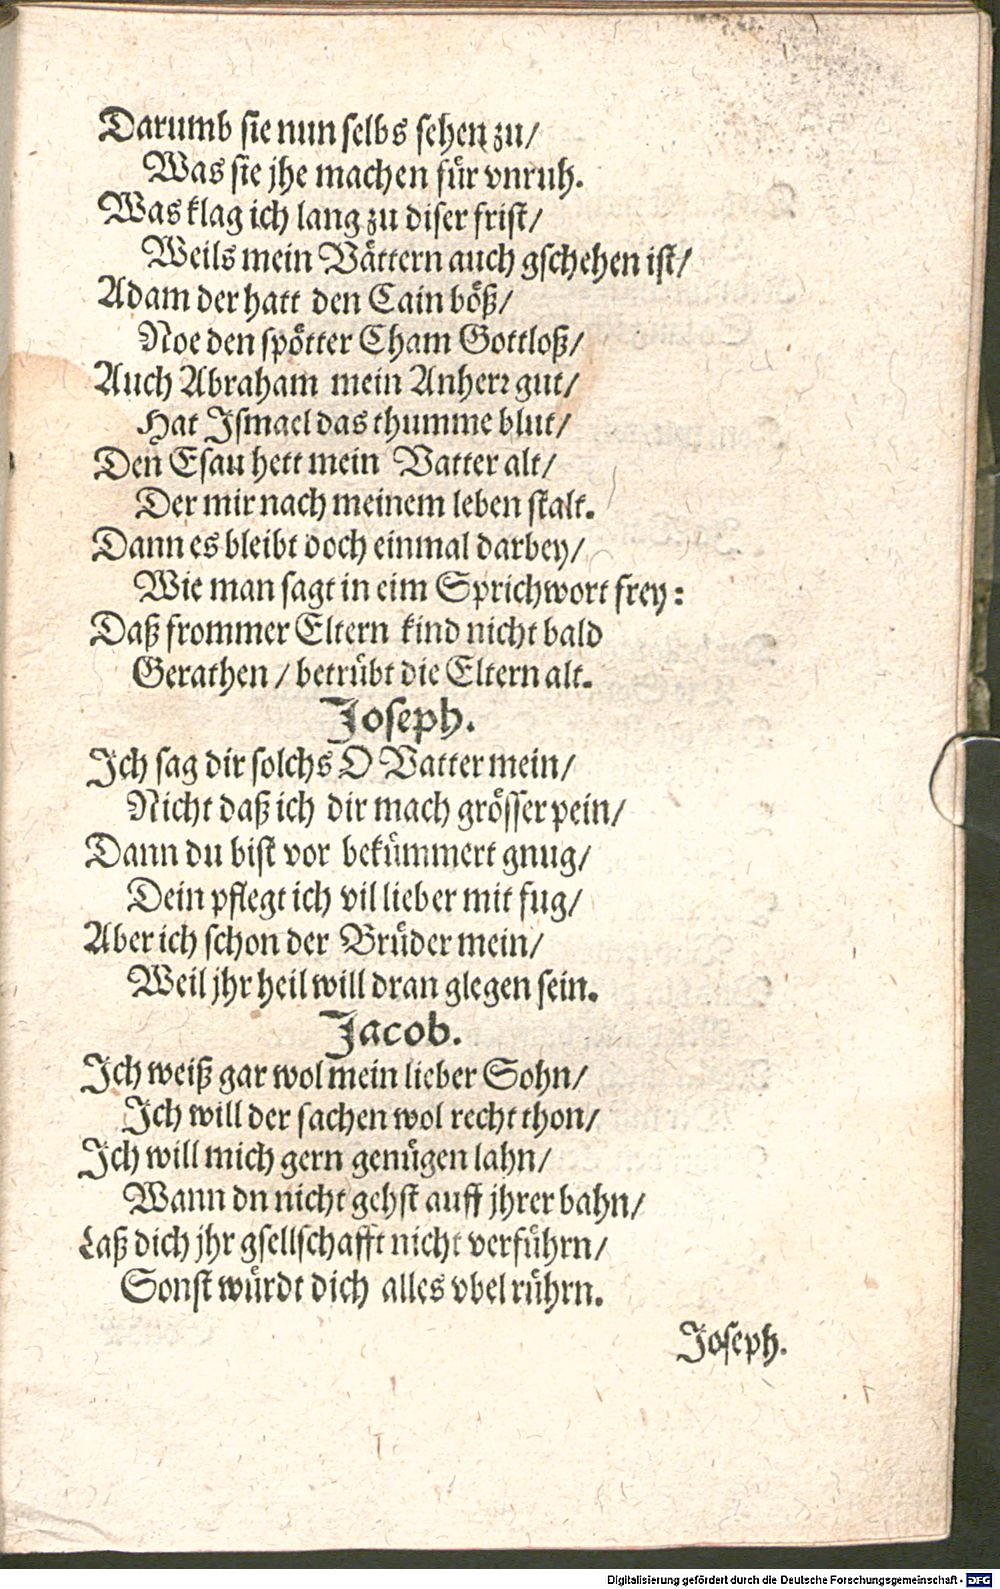 Darumb sie nun selbs sehen zu/
Was sie jhe machen für vnruh.
Was klag ich lang zu diser frist/
Weils mein Vättern auch gschehen ist/
Adam der hatt den Cain böß/
Noe den spötter Cham Gottloß/
Auch Abraham mein Anherr gut/
Hat Ismael das thumme blut/
Den Esau hett mein Vatter alt/
Der mir nach meinem leben stalt.
Dann es bleibt doch einmal darbey/
Wie man sagt in eim Sprichwort frey:
Daß frommer Eltern kind nicht bald
Gerathen/ betrübt die Eltern alt.
Joseph.
Ich sag dir solchs O Vatter mein/
Nicht daß ich dir mach grösser pein/
Dann du bist vor bekümmert gnug/
Dein pflegt ich vil lieber mit fug/
Aber ich schon der Brüder mein/
Weil jhr heil will dran glegen sein.
Jacob.
Ich weiß gar wol mein lieber Sohn/
Ich will der sachen wol recht thon/
Ich will mich gern genügen lahn/
Wann dn nicht gehst auff jhrer bahn/
Laß dich jhr gsellschafft nicht verführn/
Sonst würdt dich alles vbel rührn.
Joseph.
Digitalisierung gefördert durch die Deutsche Forschungsgemeinschaft - DFG